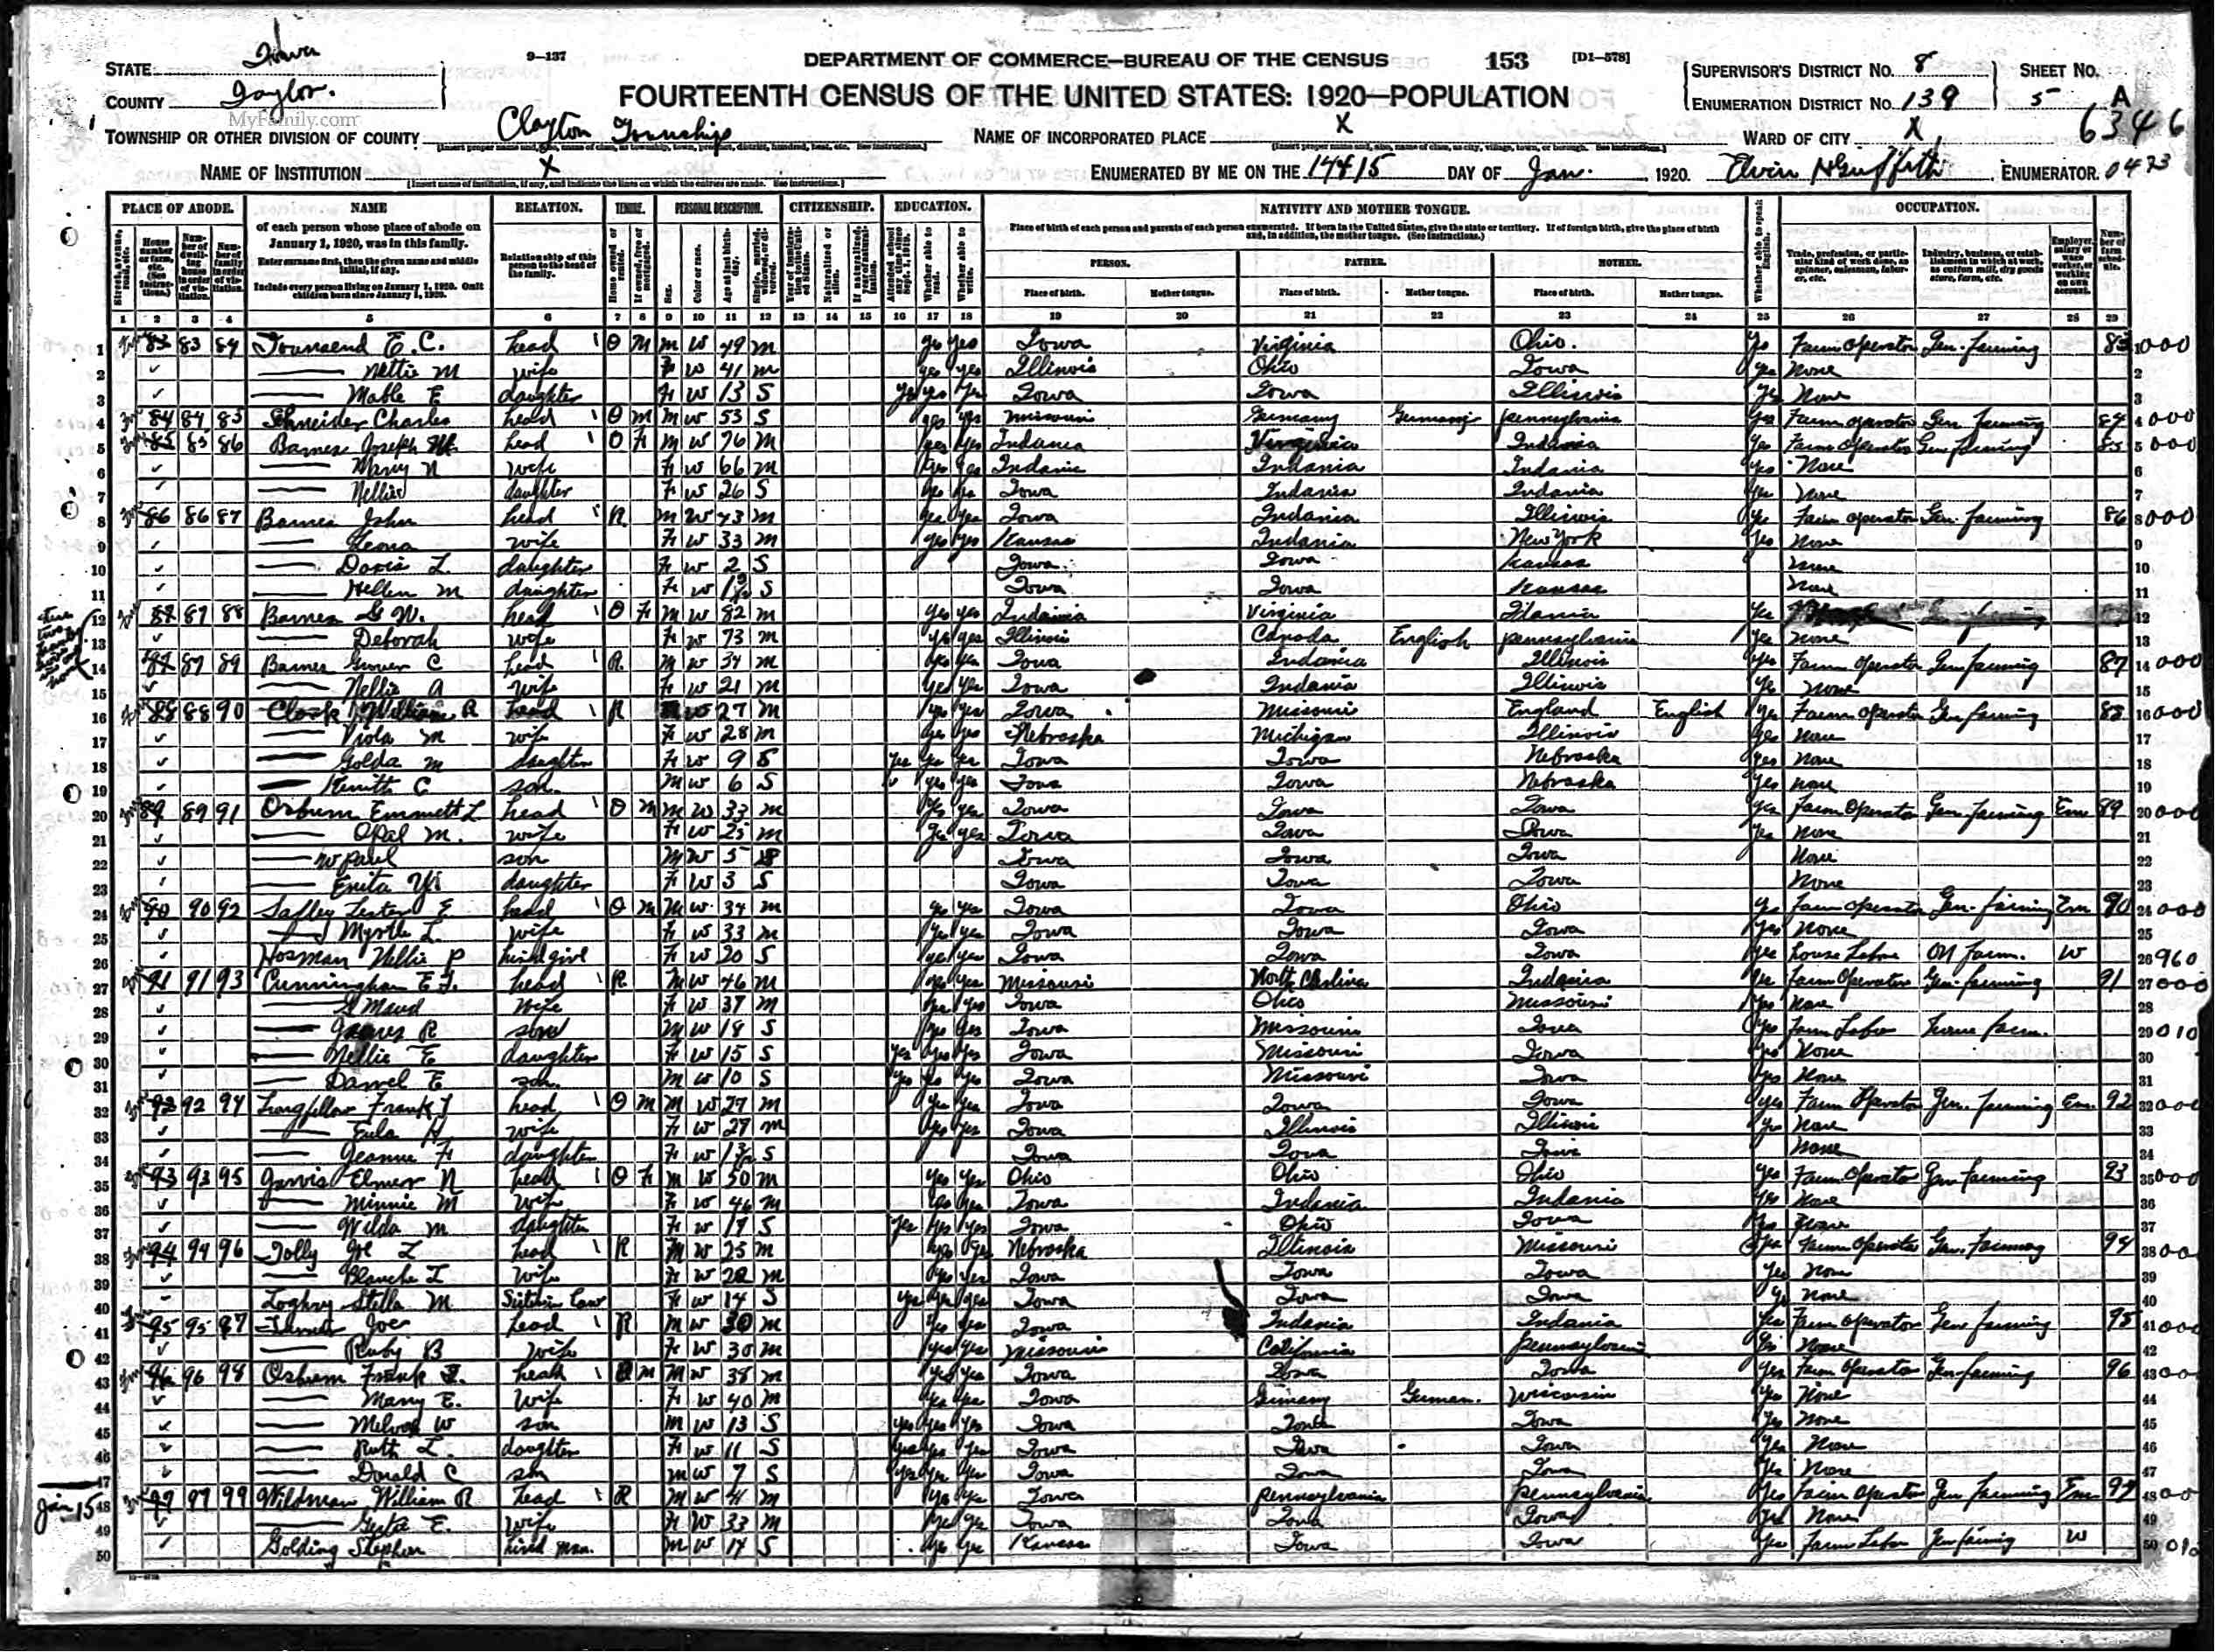 STATE Iowa
9—137
DEPARTMENT OF COMMERCE—BUREAU OF THE CENSUS
153
[D1-578]
SUPERVISOR'S DISTRICT NO. 8
SHEET NO.
COUNTY Taylor.
FOURTEENTH CENSUS OF THE UNITED STATES: 1920—POPULATION
ENUMERATION DISTRICT NO. 139
5 A
MyFamily.com
6346
TOWNSHIP OR OTHER DIVISION OF COUNTY Clayton Township
NAME OF INCORPORATED PLACE X
WARD OF CITY X
NAME OF INSTITUTION X
ENUMERATED BY ME ON THE 14&15 DAY OF Jan. 1920. ENUMERATOR. 0423
PLACE OF ABODE. NAME RELATION. TENURE. PERSONAL DESCRIPTION. CITIZENSHIP. EDUCATION. NATIVITY AND MOTHER TONGUE. OCCUPATION.
of each person whose place of abode on January 1, 1920, was in this family.
Enter surname first, then the given name and middle initial, if any.
Include every person living on January 1, 1920. Omit children born since January 1, 1920.
Relationship of this person to the head of the family.
Place of birth of each person and parents of each person enumerated. If born in the United States, give the state or territory. If of foreign birth, give the place of birth and, in addition, the mother tongue. (See Instructions.)
PERSON. FATHER. MOTHER.
Place of birth. Mother tongue. Place of birth. Mother tongue. Place of birth. Mother tongue.
1 2 3 4 5 6 7 8 9 10 11 12 13 14 15 16 17 18 19 20 21 22 23 24 25 26 27 28 29
1 83 83 84 Townsend E. C. head O M M W 49 M yes yes Iowa Virginia Ohio. Yes Farm Operator Gen. farming 83 000
2 Nettie M wife F W 41 M yes yes Illinois Ohio Iowa Yes None
3 Mable E daughter F W 13 S Yes yes Yes Iowa Iowa Illinois Yes None
4 84 84 85 Schneider Charles head O M M W 53 S yes yes Missouri Germany Germany Pennsylvania Yes Farm operator Gen. farming 84 000
5 85 85 86 Barnes Joseph head O F M W 76 M yes yes Indiana Virginia Indiana Yes Farm Operator Gen farming 85 000
6 Mary N wife F W 66 M yes yes Indiana Indiana Indiana Yes None
7 Nellie daughter F W 26 S yes yes Iowa Indiana Indiana Yes None
8 86 86 87 Barnes John head R M W 43 M yes yes Iowa Indiana Illinois Yes Farm operator Gen. farming 86 000
9 Leona wife F W 33 M yes yes Kansas Indiana New York Yes None
10 Doris L. daughter F W 2 S Iowa Iowa Kansas None
11 Hellen M daughter F W S Iowa Iowa Kansas None
12 87 87 88 Barnes G W. head O F M W 82 M yes yes Indiana Virginia Yes
13 Deborah wife F W 73 M yes yes Illinois Canada English Pennsylvania Yes None
14 87 87 89 Barnes Grover C head R M W 34 M yes yes Iowa Indiana Illinois Yes Farm operator Gen farming 87 000
15 Nellie A wife F W 21 M yes yes Iowa Indiana Illinois Yes None
16 88 88 90 Clark William R head R M W 27 M yes yes Iowa Missouri England English Yes Farm operator Gen farming 88 000
17 Viola M wife F W 28 M yes yes Nebraska Michigan Illinois Yes None
18 Golda M daughter F W 9 S Yes Yes Yes Iowa Iowa Nebraska Yes None
19 C son. M W 6 S yes yes Iowa Iowa Nebraska Yes None
20 89 89 91 Osburn Emmett L head O M M W 33 M yes yes Iowa Iowa Iowa Yes Farm Operator Gen. farming Em 89 000
21 Opal M. wife F W 25 M yes yes Iowa Iowa Iowa Yes None
22 W Paul son M W 5 S Iowa Iowa Iowa None
23 daughter F W 3 S Iowa Iowa Iowa None
24 90 90 92 Lester E head O M M W 34 M yes yes Iowa Iowa Ohio Yes Farm operator Gen. farming Em 90 000
25 Myrtle L. wife F W 33 M yes yes Iowa Iowa Iowa Yes None
26 Hosman Nellie P hired girl F W 20 S yes yes Iowa Iowa Iowa Yes house Labor On farm. W 960
27 91 91 93 Cunningham E F. head R M W 46 M yes yes Missouri North Carolina Indiana Yes Farm Operator Gen. farming 91 000
28 Maud wife F W 37 M yes yes Iowa Ohio Missouri Yes None
29 James R son M W 18 S yes yes Iowa Missouri Iowa Yes Farm Labor Home farm. 010
30 Nellie E daughter F W 15 S Yes Yes Yes Iowa Missouri Iowa Yes None
31 Daniel E son. M W 10 S Yes Yes Yes Iowa Missouri Iowa Yes None
32 92 92 94 Longfellow Frank head O M M W 27 M yes yes Iowa Iowa Iowa Yes Farm Operator Gen. farming Em. 92 000
33 Eula wife F W 27 M yes yes Iowa Illinois Illinois Yes None
34 Jeanne F daughter F W S Iowa Iowa Iowa None
35 93 93 95 Jarvis Elmer N head O F M W 50 M yes yes Ohio Ohio Ohio Yes Farm Operator Gen farming 93 000
36 Minnie M wife F W 46 M yes yes Iowa Indiana Indiana Yes None
37 Wilda M daughter F W 17 S Yes Yes Yes Iowa Ohio Iowa Yes None
38 94 94 96 Jolly Joe L head R M W 25 M yes yes Nebraska Illinois Missouri Yes Farm Operator Gen. farming 94 00
39 Blanche L wife F W 22 M yes yes Iowa Iowa Iowa Yes None
40 Loghry Stella M Sister in law F W 14 S yes yes yes Iowa Iowa Iowa Yes None
41 95 95 97 Joe head R M W 30 M yes yes Iowa Indiana Indiana Yes Farm operator Gen farming 95 000
42 Ruby B wife F W 30 M yes yes Missouri California Pennsylvania Yes None
43 96 96 98 Osburn Frank head O M M W 38 M yes yes Iowa Iowa Iowa Yes Farm Operator Gen farming 96 00
44 Mary E. wife F W 40 M yes yes Iowa Germany German. Wisconsin Yes None
45 W son M W 13 S yes yes yes Iowa Iowa Iowa Yes None
46 Ruth L. daughter F W 11 S yes yes yes Iowa Iowa Iowa Yes None
47 Donald C son M W 7 S yes yes yes Iowa Iowa Iowa Yes None
Jan 15
48 97 97 99 Wildman William R head R M W 41 M yes yes Iowa Pennsylvania Pennsylvania Yes Farm Operator Gen farming Em 97 00
49 E. wife F W 33 M yes yes Iowa Iowa Iowa Yes None
50 Golding Stephen hired man. M W 17 S yes yes Kansas Iowa Iowa Yes Farm Labor Gen farming W